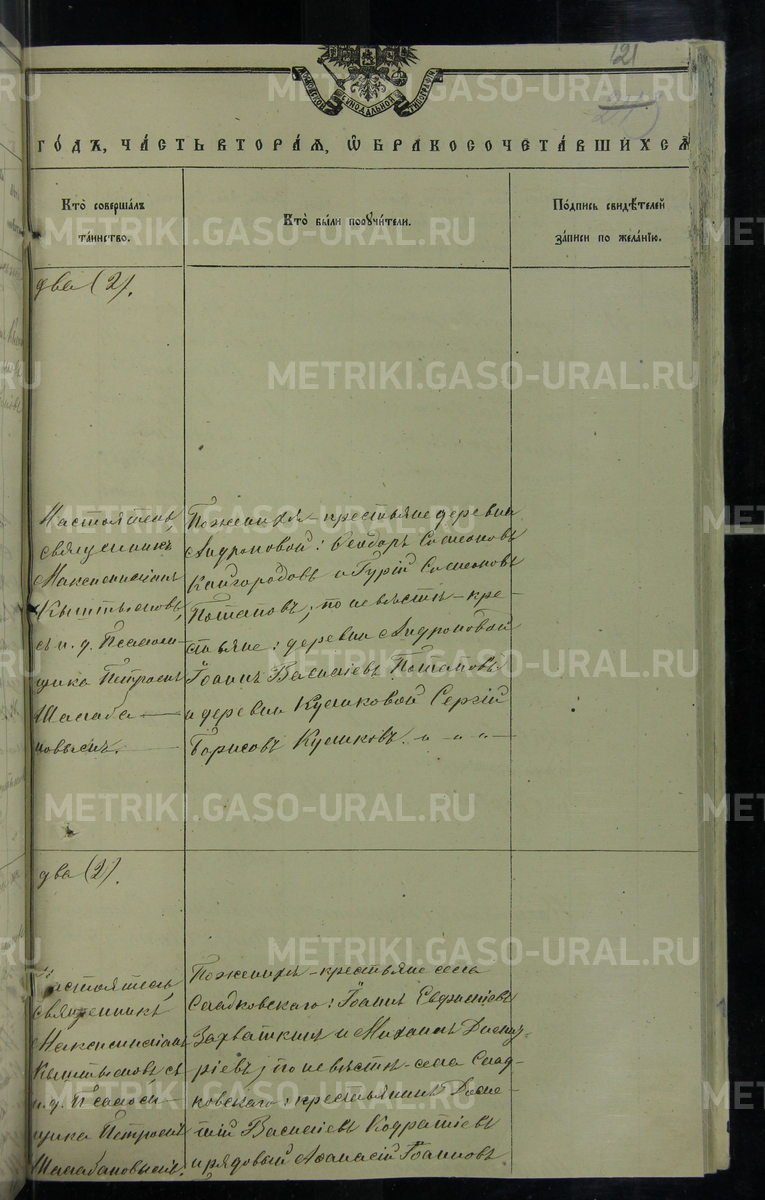 121
МОСКОВСКОЙ СИНОДАЛЬНОЙ ТИПОГРАФІИ
ГО́ДЪ, ЧА́СТЬ ВТОРА́Я, Ѡ БРАКОСОЧЕТА́ВШИХСЯ
Кто̀ соверша́лъ та́инство.
Кто̀ бы́ли порꙋчи́тели.
По́дпись свидѣ́телей за́писи по жела́нїю.
два (2).
Настоятель,
священникъ
Максимиліанъ
Кыштымовъ,
съ и. д. Псаломщика Петромъ
Шалаба-
новымъ.
По женихѣ - крестьяне деревни
Андроновой: Ѳеодоръ Симеоновъ
Кайгородовъ и Гурій Симеоновъ
Потаповъ; по невѣстѣ - кре-
стьяне: деревни Андроновой
Іоаннъ Василіевъ Потаповъ
и деревни Куликовой Сергій
Борисовъ Куликовъ.
два (2).
Настоятель,
священникъ
Максимиліанъ
Кыштымовъ съ
и. д. Псалом-
щика Петромъ
Шалабановымъ.
По женихѣ - крестьяне села
Сладковскаго: Іоаннъ Евфиміевъ
Захваткинъ и Михаилъ
ріевъ; по невѣстѣ - села Слад-
ковскаго: крестьянинъ
Василіевъ Кодратіев
и рядовый Аѳанасій Іоанновъ
METRIKI.GASO-URAL.RU